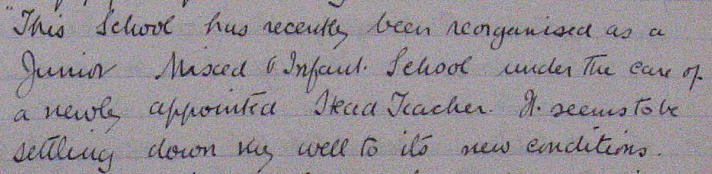 "This School has recently been reorganised as a
Junior Mixed & Infant. School under the care of
a newly appointed Head Teacher. It seems to be
settling down very well to its new conditions.